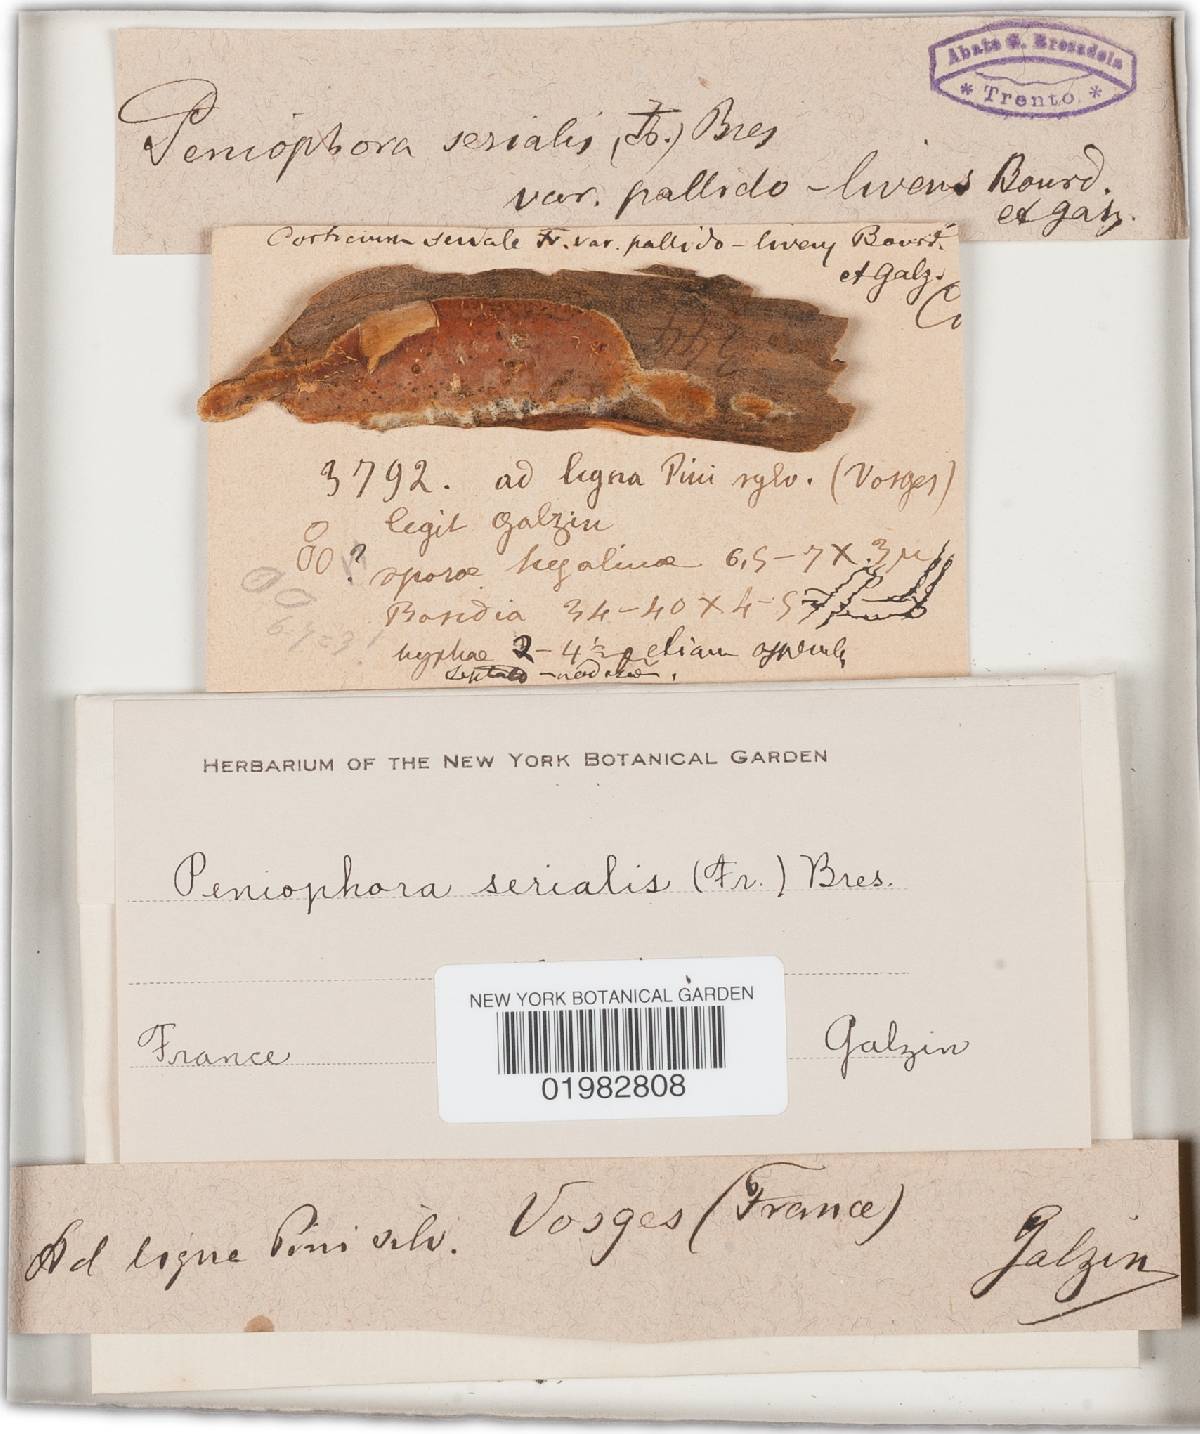 Abate G. Bresadola
* Trento *
Peniophora serialis (Fr.) Bres
var. pallido-livens Bourd.
et Galz.
Corticium seriale Fr. var. pallido-livens Bourd.
et Galz.
244
3792. ad ligna Pini sylv. (Vosges)
legit Galzin
sporae hyalinae 6,5-7 X 3 µ
Basidia 34-40 X 4-5
hyphae 2-4½ µ etiam
septato-nodosae.
HERBARIUM OF THE NEW YORK BOTANICAL GARDEN
Peniophora serialis (Fr.) Bres.
NEW YORK BOTANICAL GARDEN
01982808
France
Galzin
Ad ligna Pini silv. Vosges (France)
Galzin